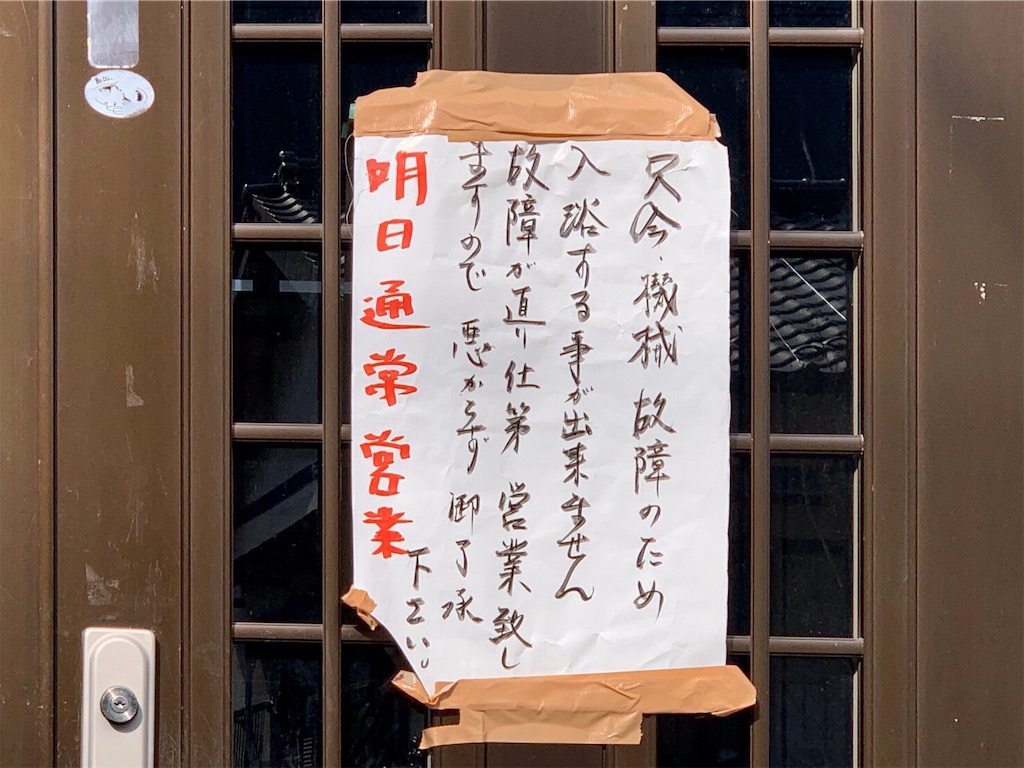 只今、機械故障のため
入浴する事が出来ません
故障が直り仕第営業致し
ますので悪からず御了承
下さい。
明日通常営業